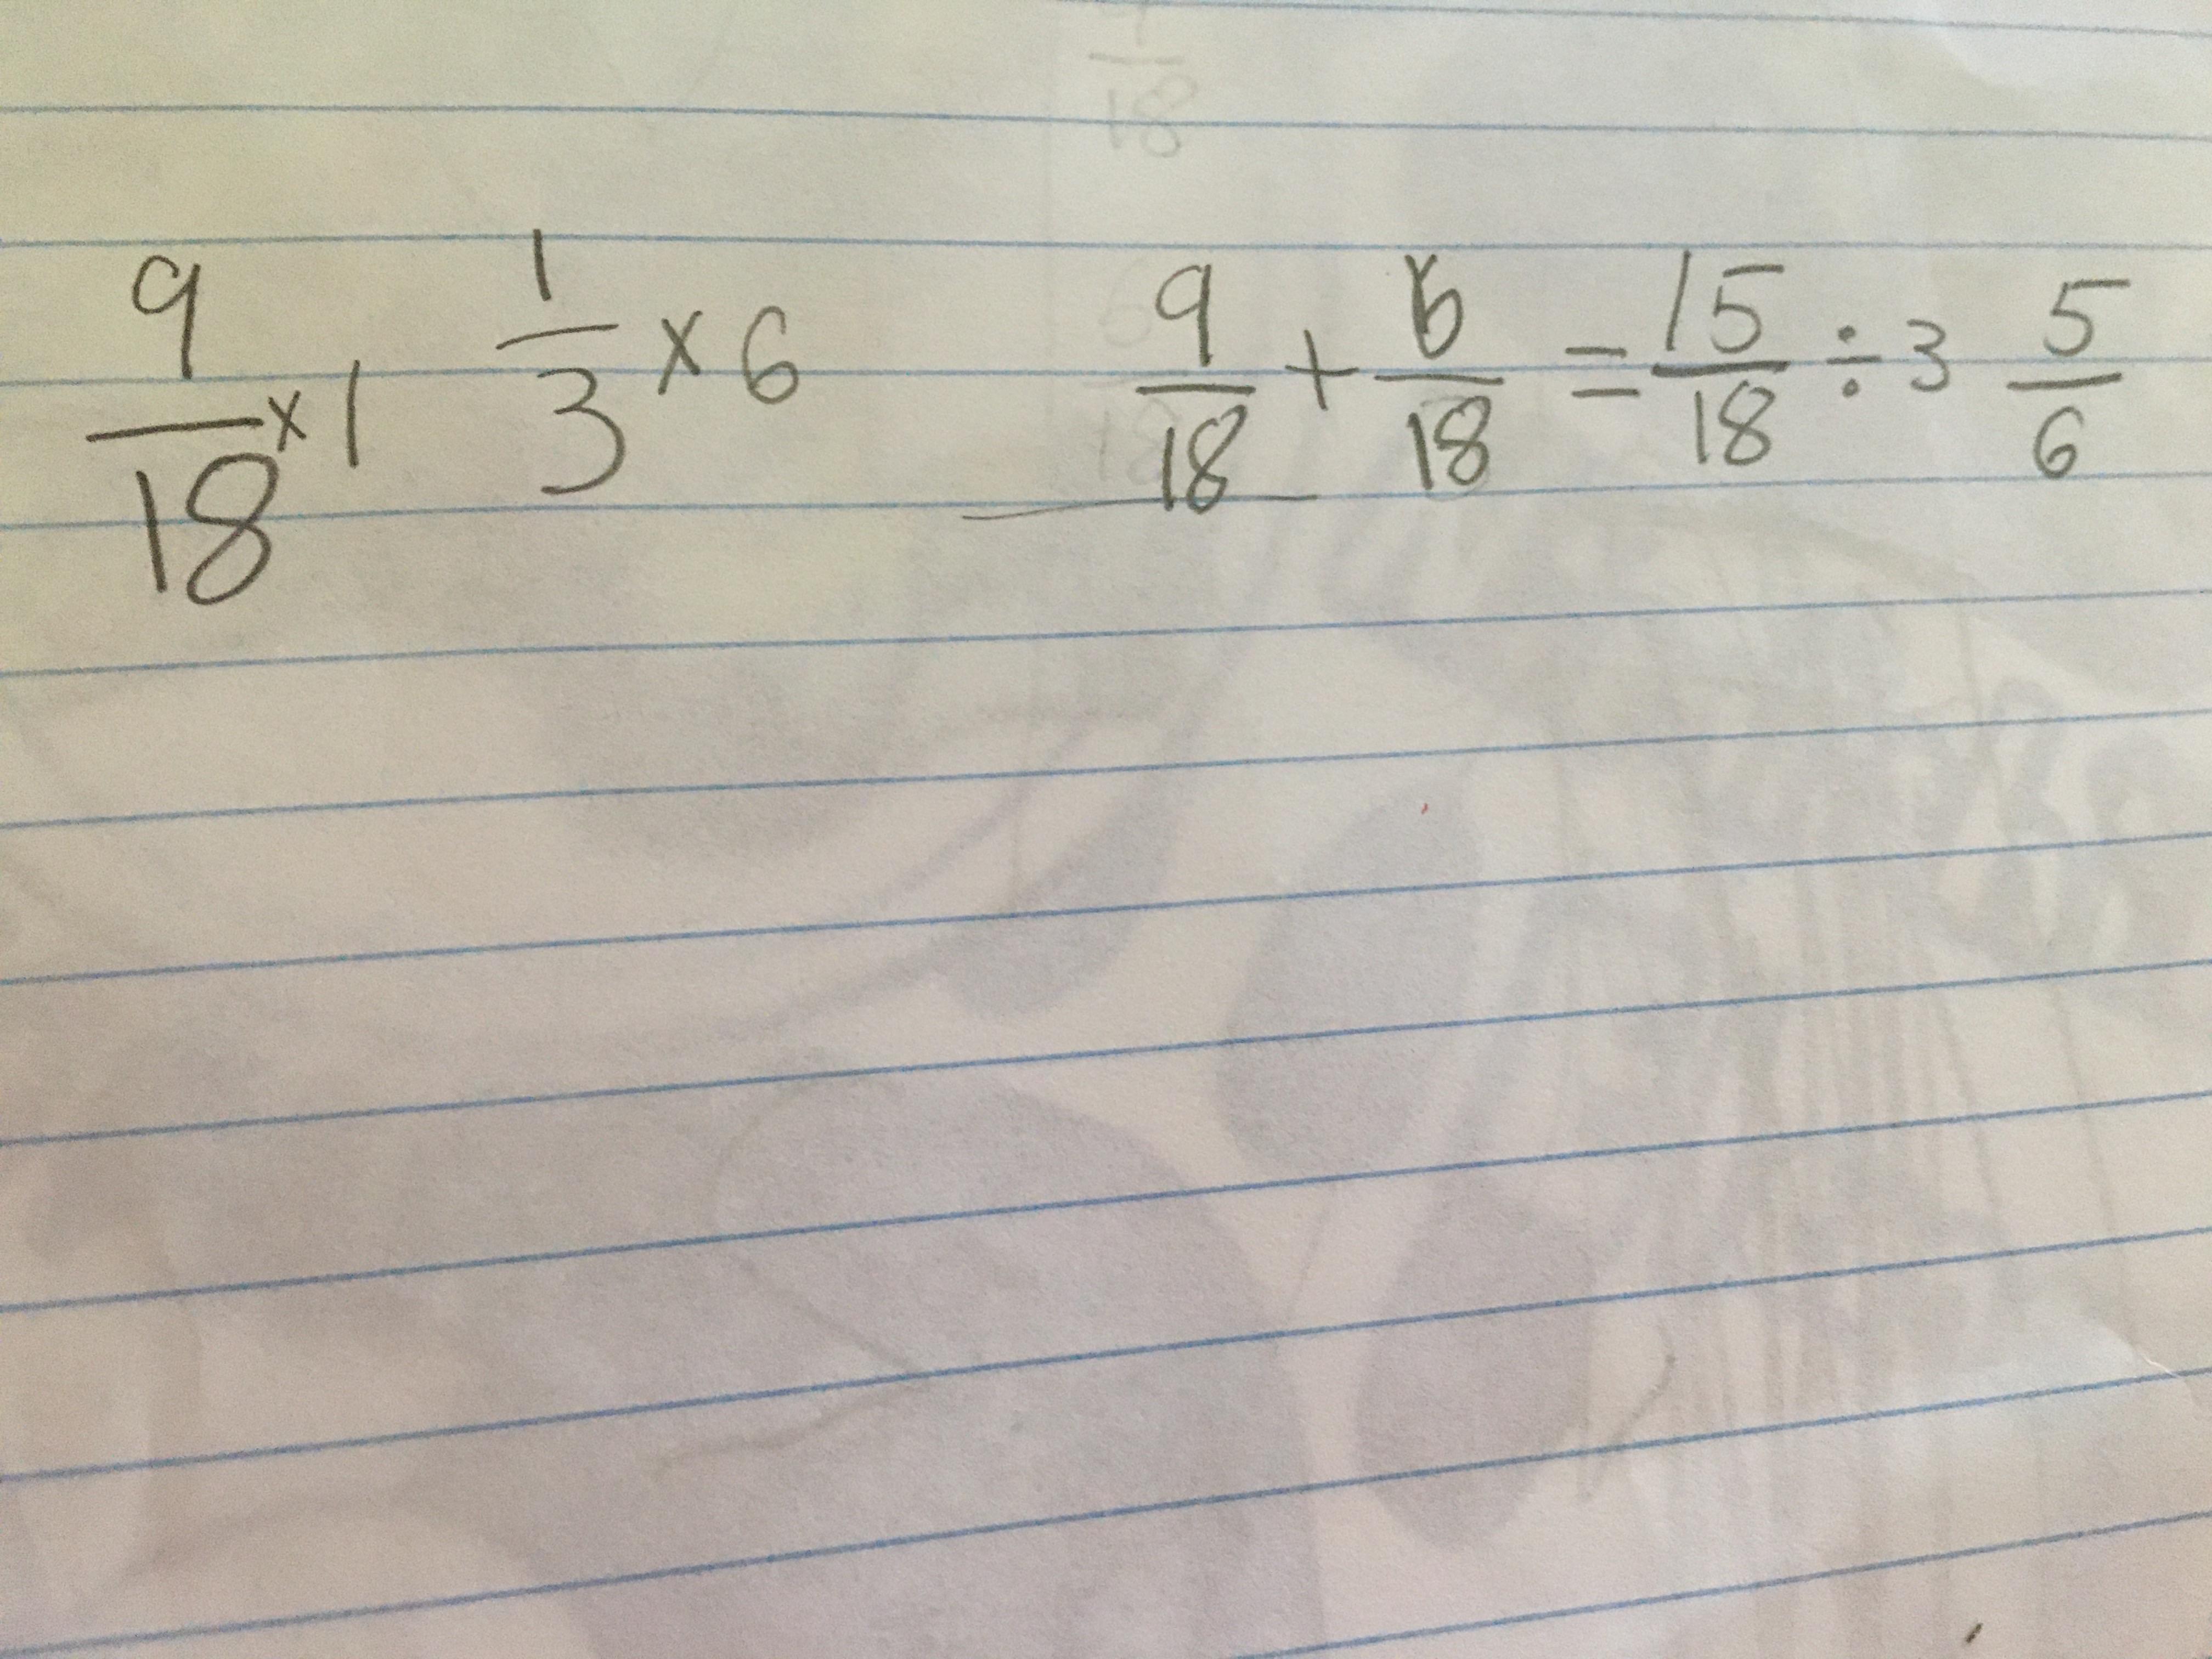 9/18 × 1 1/3 × 6 9/18 + 6/18 = 15/18 ÷ 3 5/6